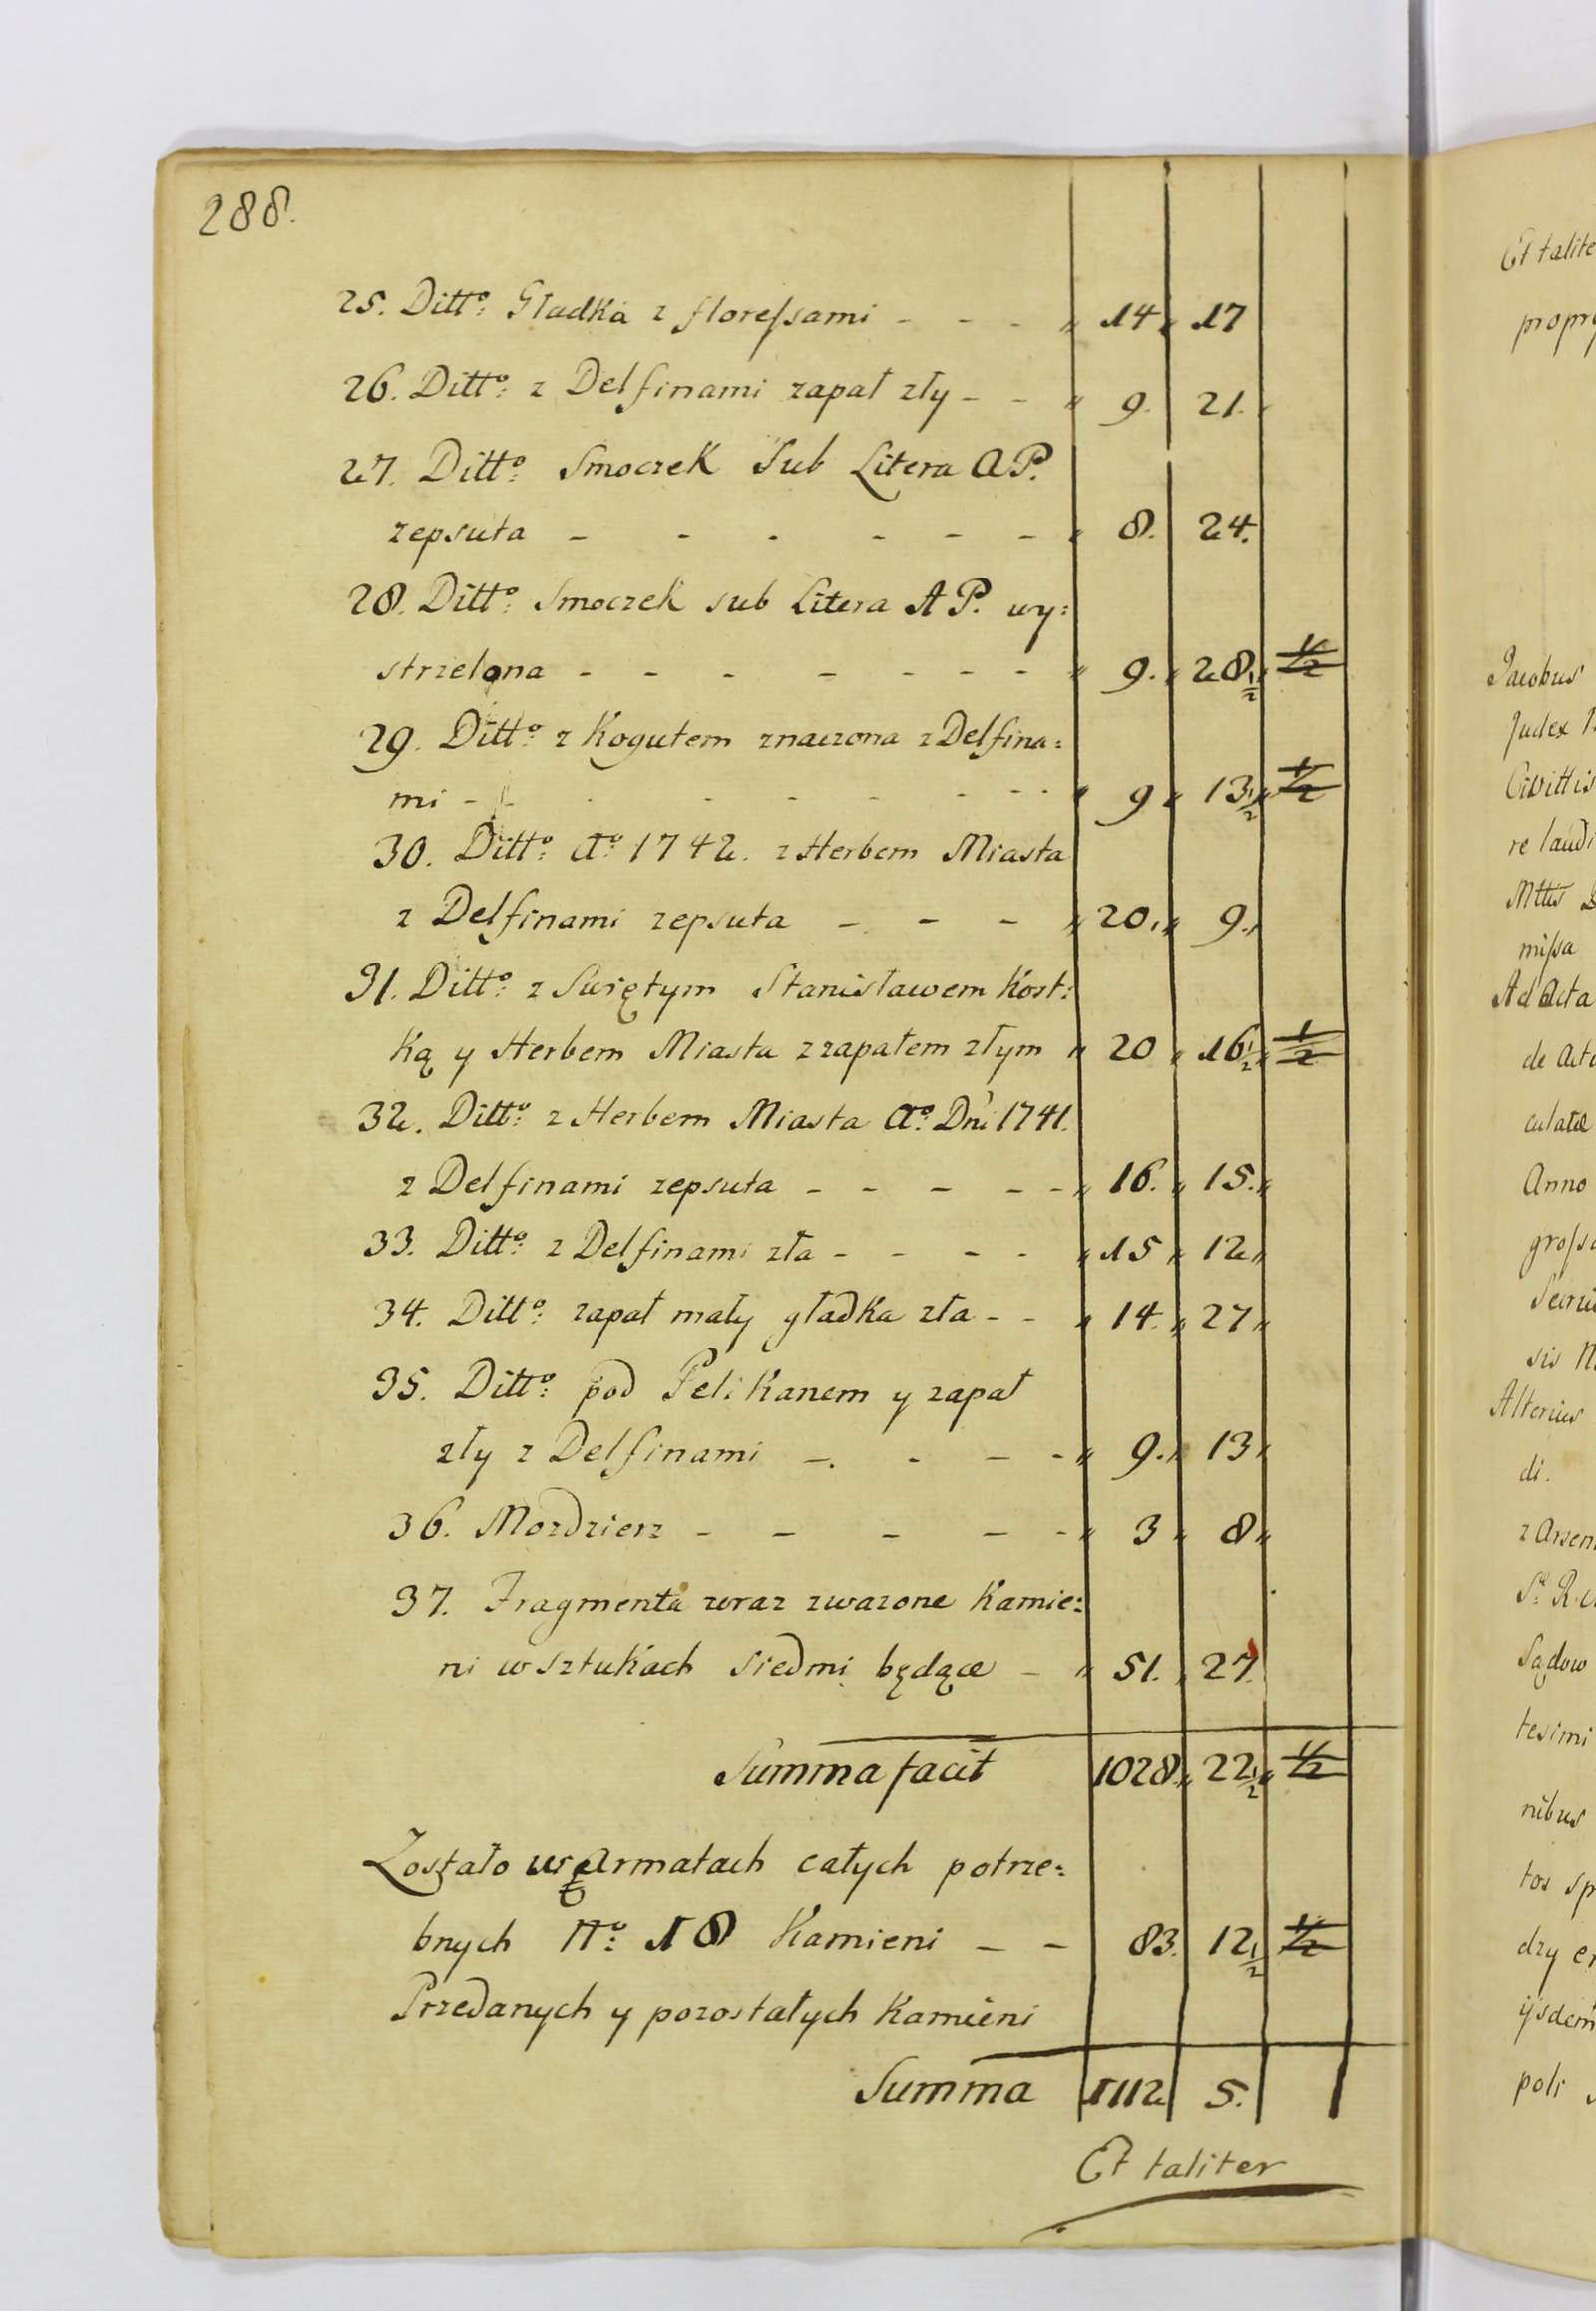 288.
25. Ditto: Gładka z floreſsami - - - „ 14 „ 17
26. Ditto: z Delfinami zapał zły - - „ 9. 21.
27. Ditto: Smoczek Sub Litera AP.
zepsuta - - - - - - „ 8. 24.
28. Ditto: Smoczek sub Litera AP. wy:
strzelona - - - - - - - „ 9. „ 28 1/2 „ 1/2
29. Ditto: z Kogutem znaczona z Delfina:
mi - - - - - - - - „ 9 „ 13 1/2 „ 1/2
30. Ditto: Ao: 1742. z Herbem Miasta
z Delfinami zepsuta - - - „ 20. „ 9. „
31. Ditto: z Swiętym Stanisławem Kost:
ką y Herbem Miasta z zapałem złym „ 20 „ 16 1/2 „ 1/2
32. Ditto: z Herbem Miasta Ao: Dni 1741.
z Delfinami zepsuta - - - - - „ 16. „ 15. „
33. Ditto: z Delfinami zła - - - - „ 15 „ 12 „
34. Ditto: zapał mały gładka zła - - „ 14. „ 27 „
35. Ditto: pod Pelikanem y zapał
zły z Delfinami - - - - „ 9. „ 13 „
36. Mozdzierz - - - - - „ 3 „ 8 „
37. Fragmenta wraz zwazone Kamie:
ni w sztukach siedmi będące - „ 51. „ 27.
Summa facit 1028. „ 22 1/2 „ 1/2
Zostało w Armatach całych potrze:
bnych No: 18 Kamieni - - 83. 12 1/2 1/2
Przedanych y pozostałych Kamieni
Summa 1112 5.
Et taliter
Et talite
propry
Jacobus
Judex
Civittis
re laudi
Mttis
miſsa
Ad Acta
de Acto
culatæ
Anno
groſso
sis
Alterius
di.
z Arsen
Sądow
tesimi
nibus
tos sp
dzy
ijsdem
poli